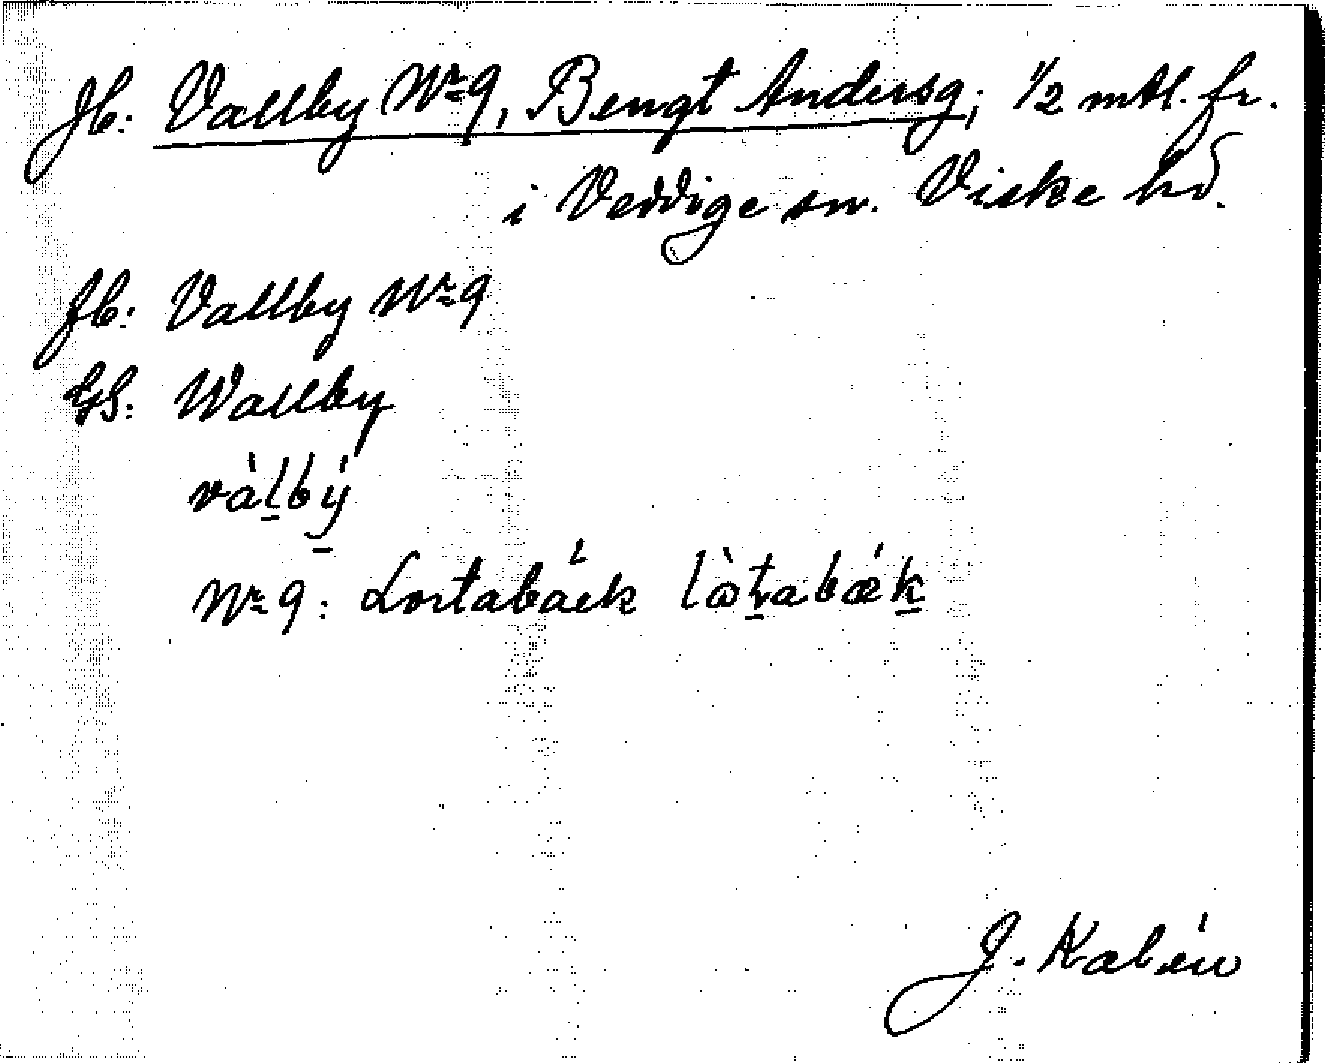 Jb: Vallby Nr 9, Bengt Andersg; 1/2 mtl. fr.
i Veddige sn. Viske hd.
Jb: Vallby Nr 9
GS: Wallby
vàlbý
Nr 9: Lortabäck lòtabǽk
J. Kalén